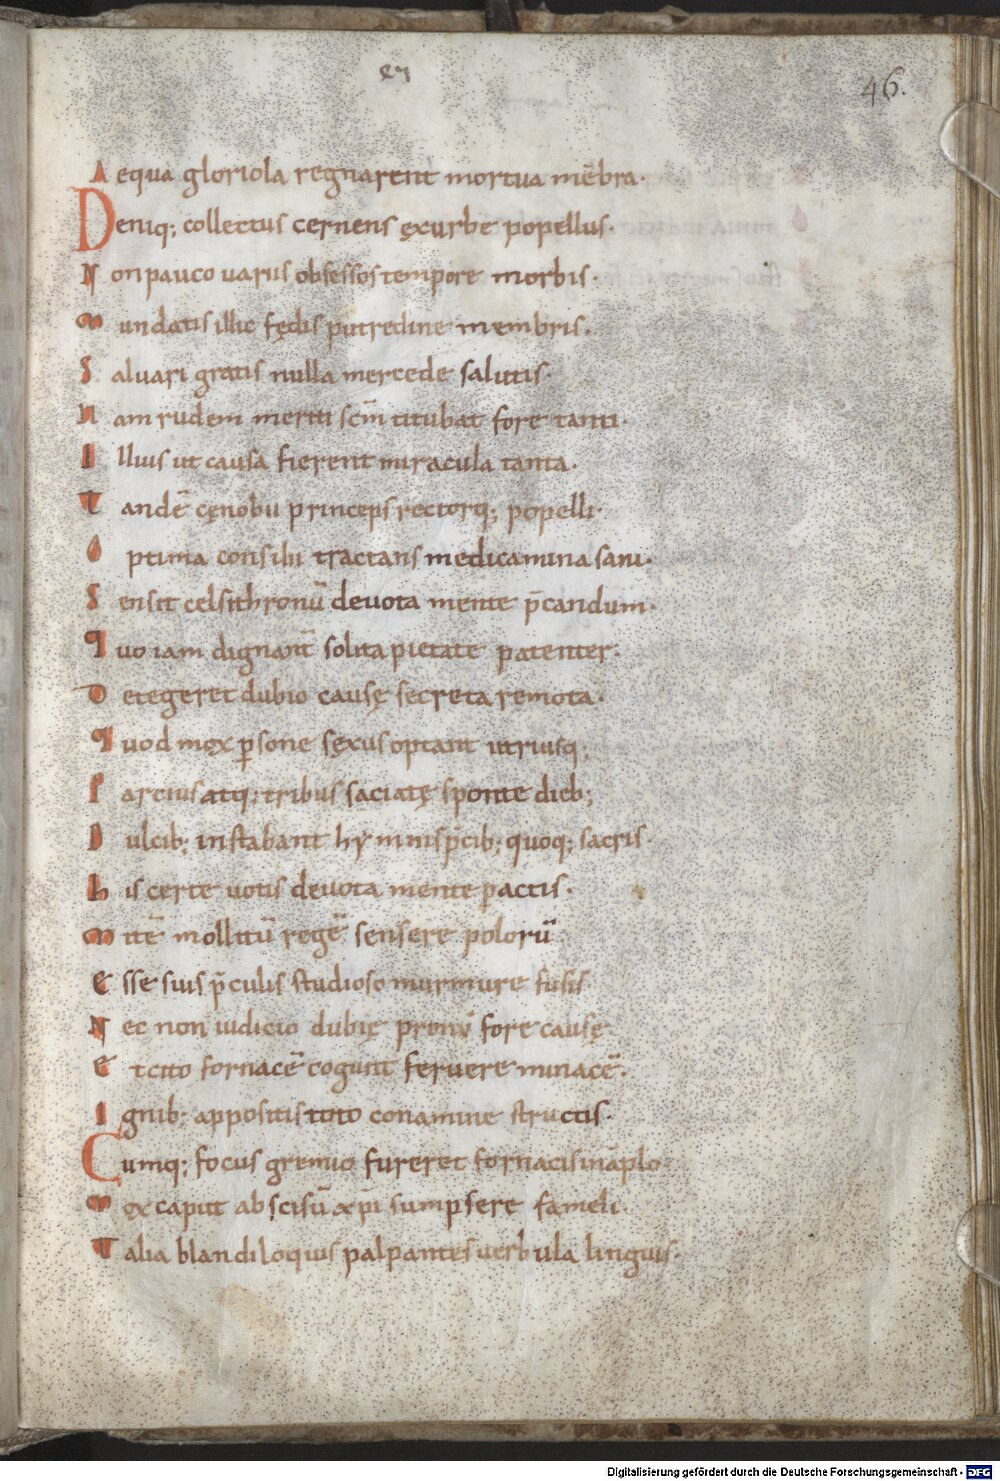 46.
Aequa gloriola regnarent mortua mēbra·
Deniq; collectus cernens ęxurbe popellus·
Non pauco uariis obsessos tempore morbis·
Mundatis illic fędis putredine membris.
Saluari gratis nulla mercede salutis·
Nam rudem meriti scm̄ titubat fore tanti·
Illius ut causa fierent miracula tanta·
Tandē cęnobii princeps rectorq; popelli·
Optima consilii tractans medicamina sani·
Sensit celsithronū deuota mente p̄candum·
Quo iam dignant̄ solita pietate patenter·
Detegeret dubio causę secreta remota·
Quod mox ꝑsone sęxus optant utriusq;
Parcius atq; tribus saciatę sponte dieb;
Dulcib; instabant hymnis p̄cib; quoq; sacris·
His certe uotis deuota mente ꝑactis·
Mitē mollitū regē sensere polorū
Esse suis p̄culis studioso murmure fusis·
Nec non iudicio dubię proni fore causę
Et cito fornacē cogunt feruere minacē·
Ignib; appositis toto conamine structis·
Cumq; focus gremio fureret fornacis in āplo
Mox caput abscisū xp̄i sumpsere fameli·
Talia blandiloquiis palpantes uerbula linguis·
Digitalisierung gefördert durch die Deutsche Forschungsgemeinschaft - DFG